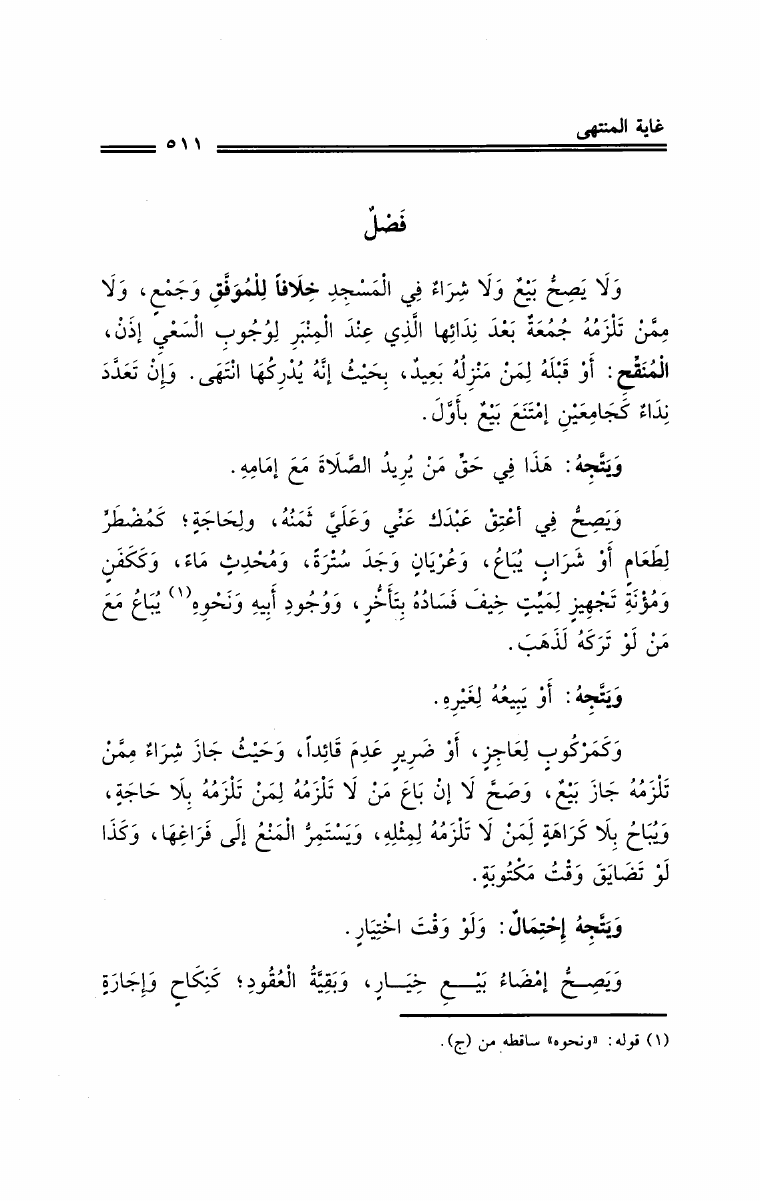 غاية المنتهى
٥١١
فَصْلٌ
وَلَا يَصِحُّ بَيْعٌ وَلَا شِرَاءٌ فِي الْمَسْجِدِ خِلَافاً لِلْمُوَفَّقِ وَجَمْعٍ، وَلَا
مِمَّنْ تَلْزَمُهُ جُمُعَةٌ بَعْدَ نِدَائِها الَّذِي عِنْدَ الْمِنْبَرِ لِوُجُوبِ السَعْيِ إذَنْ،
الْمُنَقِّح: أَوْ قَبْلَهُ لِمَنْ مَنْزِلُهُ بَعِيدٌ، بِحَيْثُ إنَّهُ يُدْرِكُهَا انْتَهَى. وَإِنْ تَعَدَّدَ
نِدَاءٌ كَجَامِعَيْنِ إمْتَنَعَ بَيْعٌ بِأَوَّلَ.
وَيَتَّجِهُ: هَذَا فِي حَقِّ مَنْ يُرِيدُ الصَّلَاةَ مَعَ إمَامِهِ.
وَيَصِحُّ فِي أعْتِقْ عَبْدَكَ عَنِّي وَعَلَيَّ ثَمَنُهُ، ولِحَاجَةٍ؛ كَمُضْطَرٍّ
لِطَعَامٍ أَوْ شَرَابٍ يُبَاعُ، وَعُرْيَانٍ وَجَدَ سُتْرَةً، وَمُحْدِثٍ مَاءً، وَكَكَفَنٍ
وَمُؤْنَةِ تَجْهِيزٍ لِمَيِّتٍ خِيفَ فَسَادُهُ بِتَأَخُّرٍ، وَوُجُودِ أَبِيهِ وَنَحْوِهِ(١) يُبَاعُ مَعَ
مَنْ لَوْ تَرَكَهُ لَذَهَبَ.
وَيَتَّجِهُ: أَوْ يَبِيعُهُ لِغَيْرِهِ.
وَكَمَرْكُوبٍ لِعَاجِزٍ، أَوْ ضَرِيرٍ عَدِمَ قَائِداً، وَحَيْثُ جَازَ شِرَاءٌ مِمَّنْ
تَلْزَمُهُ جَازَ بَيْعٌ، وَصَحَّ لَا إنْ بَاعَ مَنْ لَا تَلْزَمُهُ لِمَنْ تَلْزَمُهُ بِلَا حَاجَةٍ،
وَيُبَاحُ بِلَا كَرَاهَةٍ لَمَنْ لَا تَلْزَمُهُ لِمِثْلِهِ، وَيَسْتَمِرُّ الْمَنْعُ إلَى فَرَاغِهَا، وَكَذَا
لَوْ تَضَايَقَ وَقْتُ مَكْتُوبَةٍ.
وَيَتَّجِهُ إحْتِمَالٌ: وَلَوْ وَقْتَ اخْتِيَارٍ.
وَيَصِحُّ إمْضَاءُ بَيْعِ خِيَارٍ، وَبَقِيَّةُ الْعُقُودِ؛ كَنِكَاحٍ وَإِجَارَةٍ
(١) قوله: «ونحوه» ساقطه من (ج).